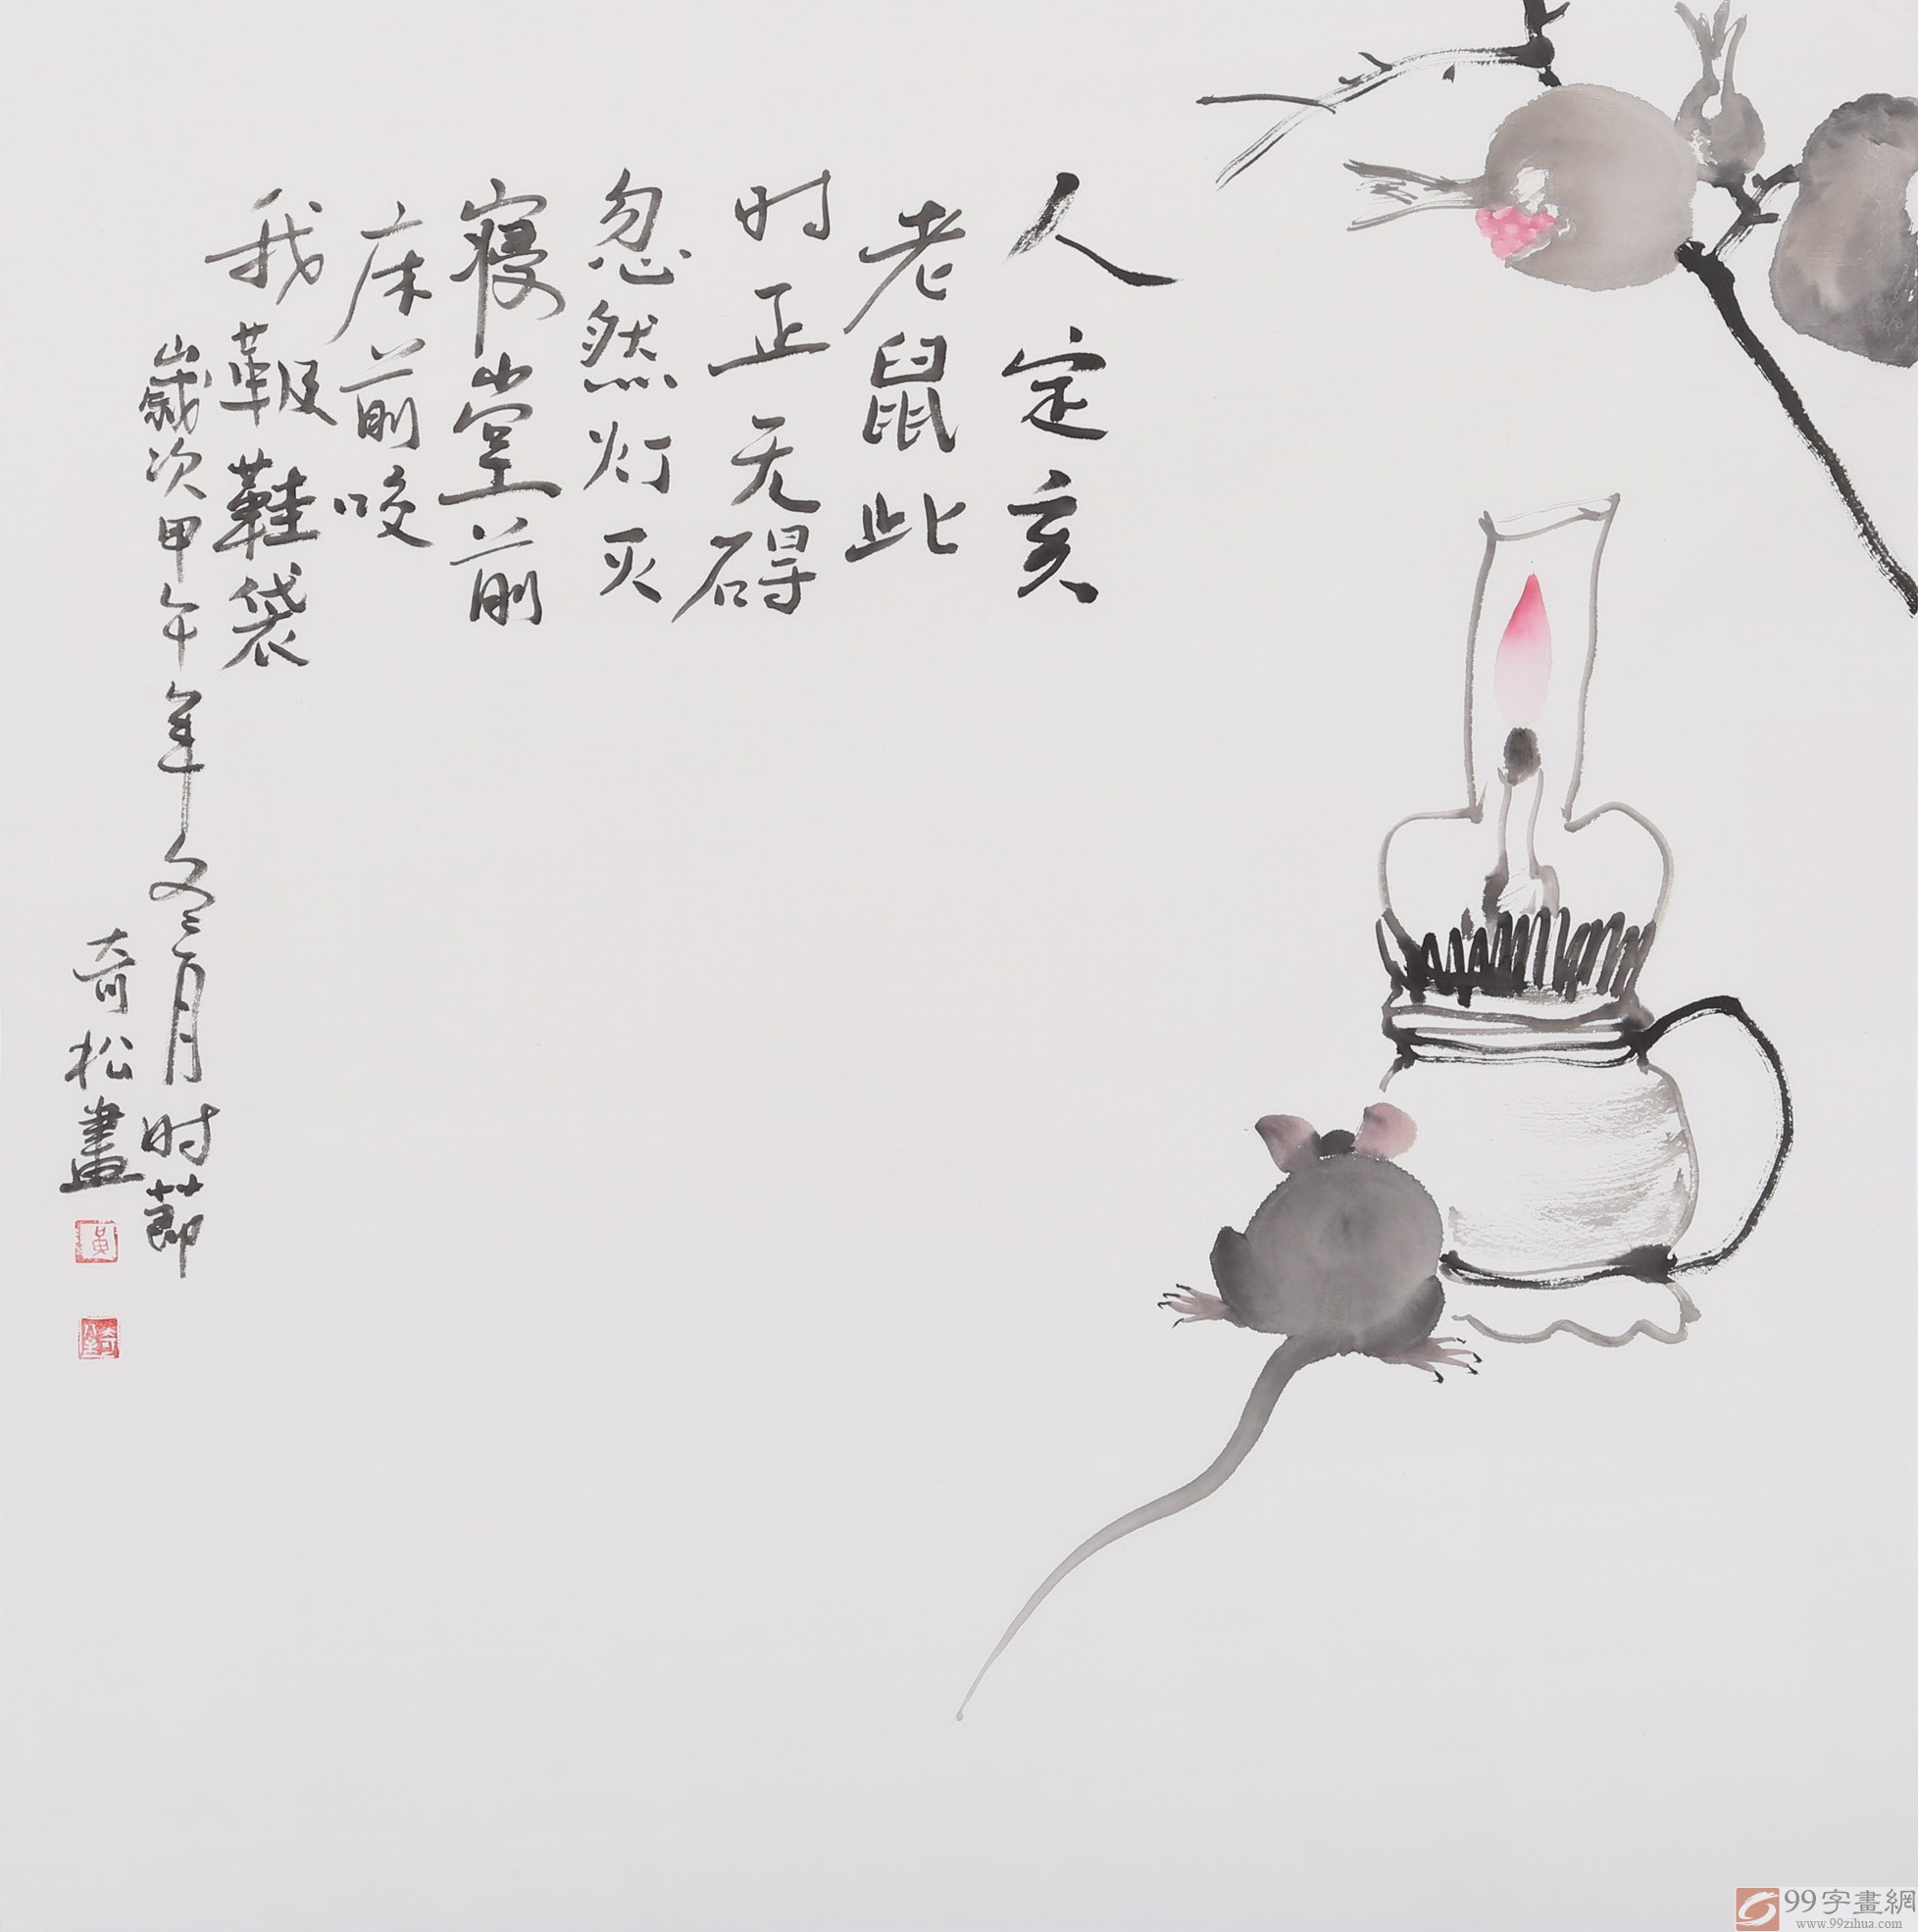 人定亥
老鼠此
时正无碍
忽然灯灭
寝堂前
床前咬
我靸鞋袋
歲次甲午年冬月时节
奇松畫
黃
99字畫網
www.99zihua.com